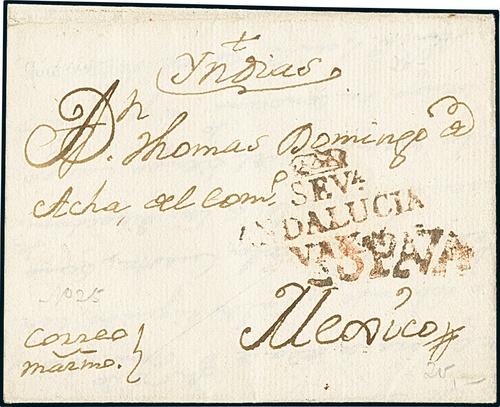 Yndias
Dn. Thomas Domingo de
Acha, del Como.
SEVA
ANDALUCIA
VAXA
ESPAÑA
No 25
Mexico
Correo
marmo.
25,-